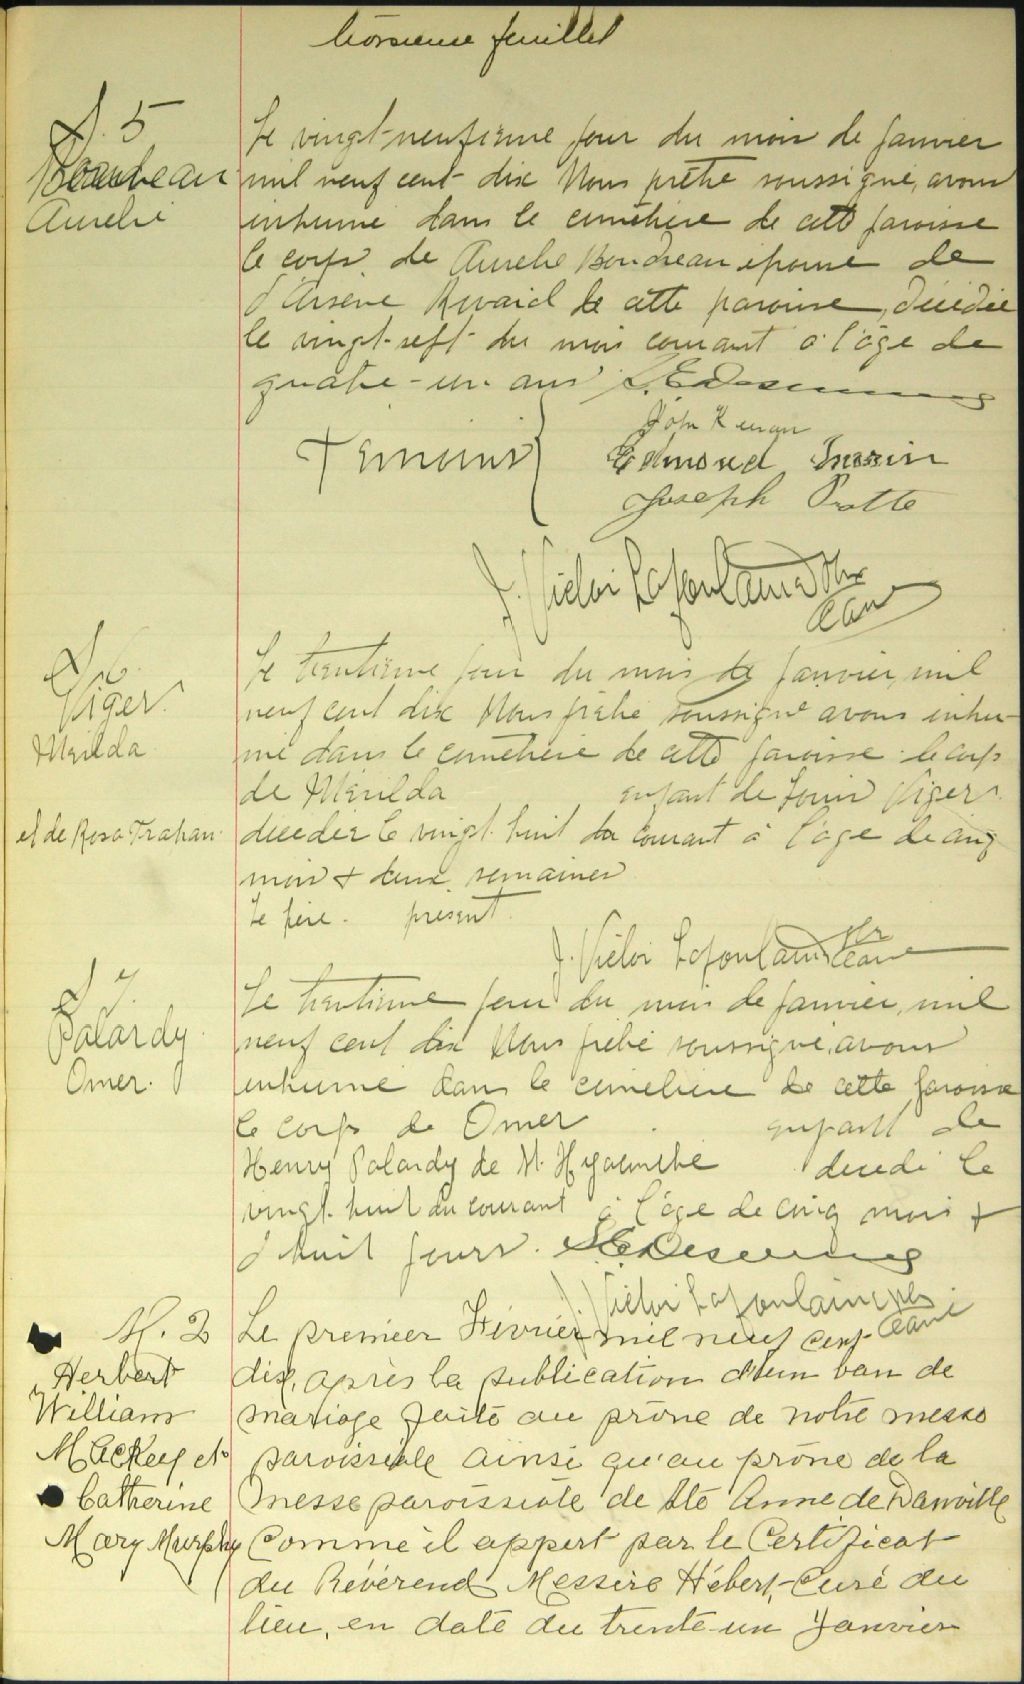 troisieme feuillet
S. 5
Boudreau
Aurelie
Le vingt-neufieme jour du mois de janvier
mil neuf cent dix Nous prêtre soussigné, avons
inhumé dans le cimetière de cette paroisse
le corps de Aurelie Boudreau epouse de
d'Arsene Rivard de cette paroisse, décédée
le vingt-sept du mois courant à l'âge de
quatre-un ans
Temoins
John Keenan
Edmond
Joseph Protte
J. Victor Lafontaine Ptr
Curé
S 6.
Viger
Merilda
et de Rosa Trahan
Le trentieme jour du mois de janvier, mil
neuf cent dix Nous prêtre soussigné avons inhu-
mé dans le cimetière de cette paroisse le corps
de Merilda enfant de Louis Viger
décédée le vingt-huit du courant à l'âge de cinq
mois & deux semaines
Le père présent.
J. Victor Lafontaine ptr
Curé
S 7.
Palardy
Omer.
Le trentieme jour du mois de janvier, mil
neuf cent dix Nous prêtre soussigné, avons
inhumé dans le cimetière de cette paroisse
le corps de Omer enfant de
Henry Palardy de St. Hyacinthe décédé le
vingt-huit du courant à l'âge de cinq mois &
d huit jours.
J. Victor Lafontaine ptr
Curé
M. 2
Herbert
William
Mackey et
Catherine
Mary Murphy
Le premier Février mil neuf cent
dix, après la publication d'un ban de
mariage faite au prône de notre messe
paroissiale ainsi qu'au prône de la
messe paroissiale de Ste Anne de Danville
Comme il appert par le Certificat
du Révérend Messire Hébert, Curé du
lieu, en date du trente-un Janvier